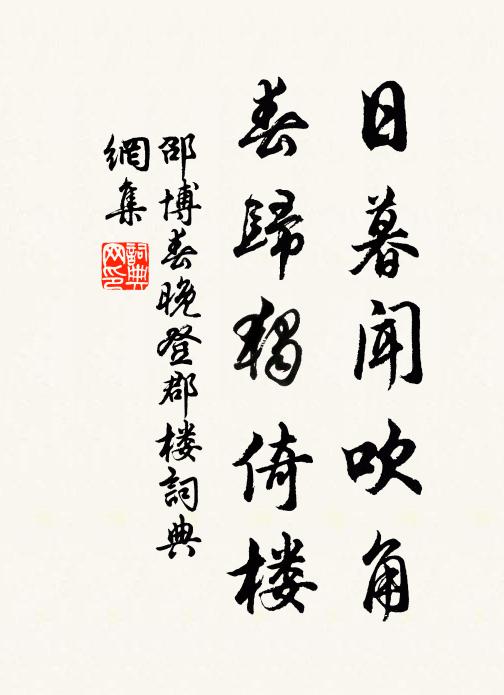 日暮闻吹角
春歸獨倚楼
邵博春晚登郡楼詞典
網集
詞典
网印